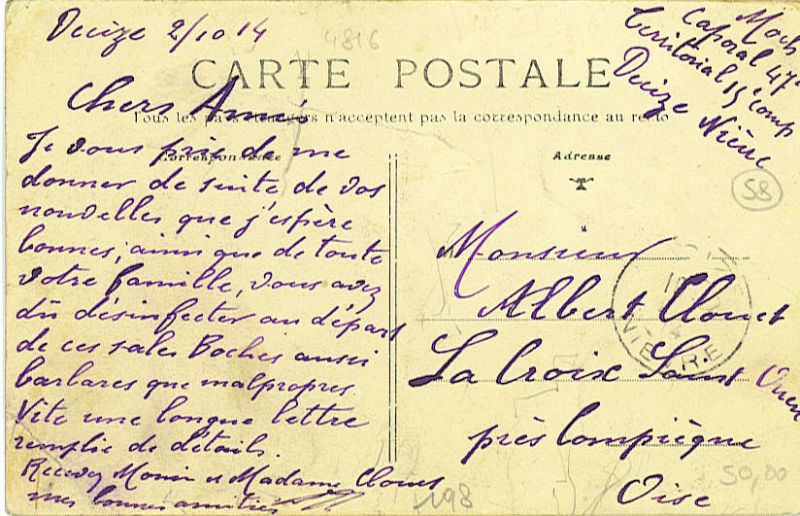 Decize 2/10 14
4816
Caporal 47e
Territorial 15e Comp
Decize Nièvre
CARTE POSTALE
Tous les pays étrangers n'acceptent pas la correspondance au recto
Correspondance
Adresse
58
Chers Amis
Je vous prie de me
donner de suite de vos
nouvelles que j'espère
bonnes, ainsi que de toute
votre famille, vous avez
dû désinfecter au départ
de ces sales Boches aussi
barbares que malpropres
Vite une longue lettre
remplie de détails.
Recevez Monsieur et Madame Clouet
mes bonnes amitiés
Monsieur
Albert Clouet
La Croix Saint Ouen
près Compiègne
Oise
NIEVRE
50,00